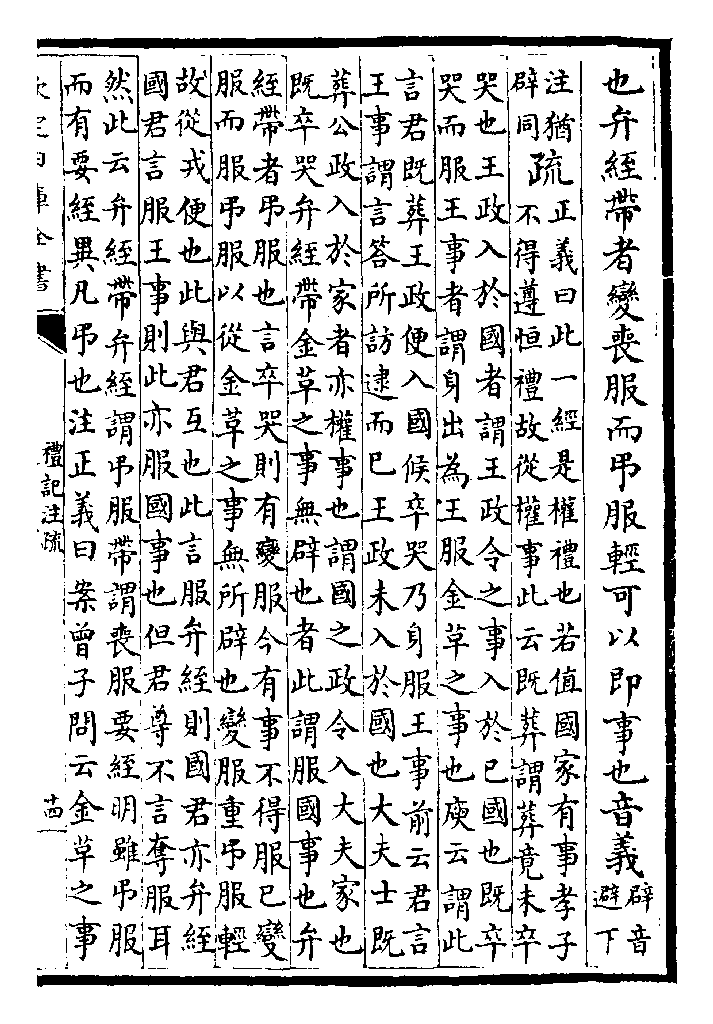 也弁絰帶者變喪服而弔服輕可以即事也音義
辟音
避下
注猶
辟同
疏
正義曰此一經是權禮也若值國家有事孝子
不得遵恒禮故從權事此云既葬謂葬竟未卒
哭也王政入於國者謂王政令之事入於已國也既卒
哭而服王事者謂身出為王服金草之事也庾云謂此
言君既葬王政便入國候卒哭乃身服王事前云君言
王事謂言答所訪逮而已王政未入於國也大夫士既
葬公政入於家者亦權事也謂國之政令入大夫家也
既卒哭弁絰帶金草之事無辟也者此謂服國事也弁
絰帶者弔服也言卒哭則有變服今有事不得服已變
服而服弔服以從金草之事無所辟也變服重弔服輕
故從戎便也此與君互也此言服弁絰則國君亦弁絰
國君言服王事則此亦服國事也但君尊不言奪服耳
然此云弁絰帶弁絰謂弔服帶謂喪服要絰明雖弔服
而有要絰異凡弔也注正義曰案曾子問云金草之事
欽定四庫全書
禮記注疏
十四